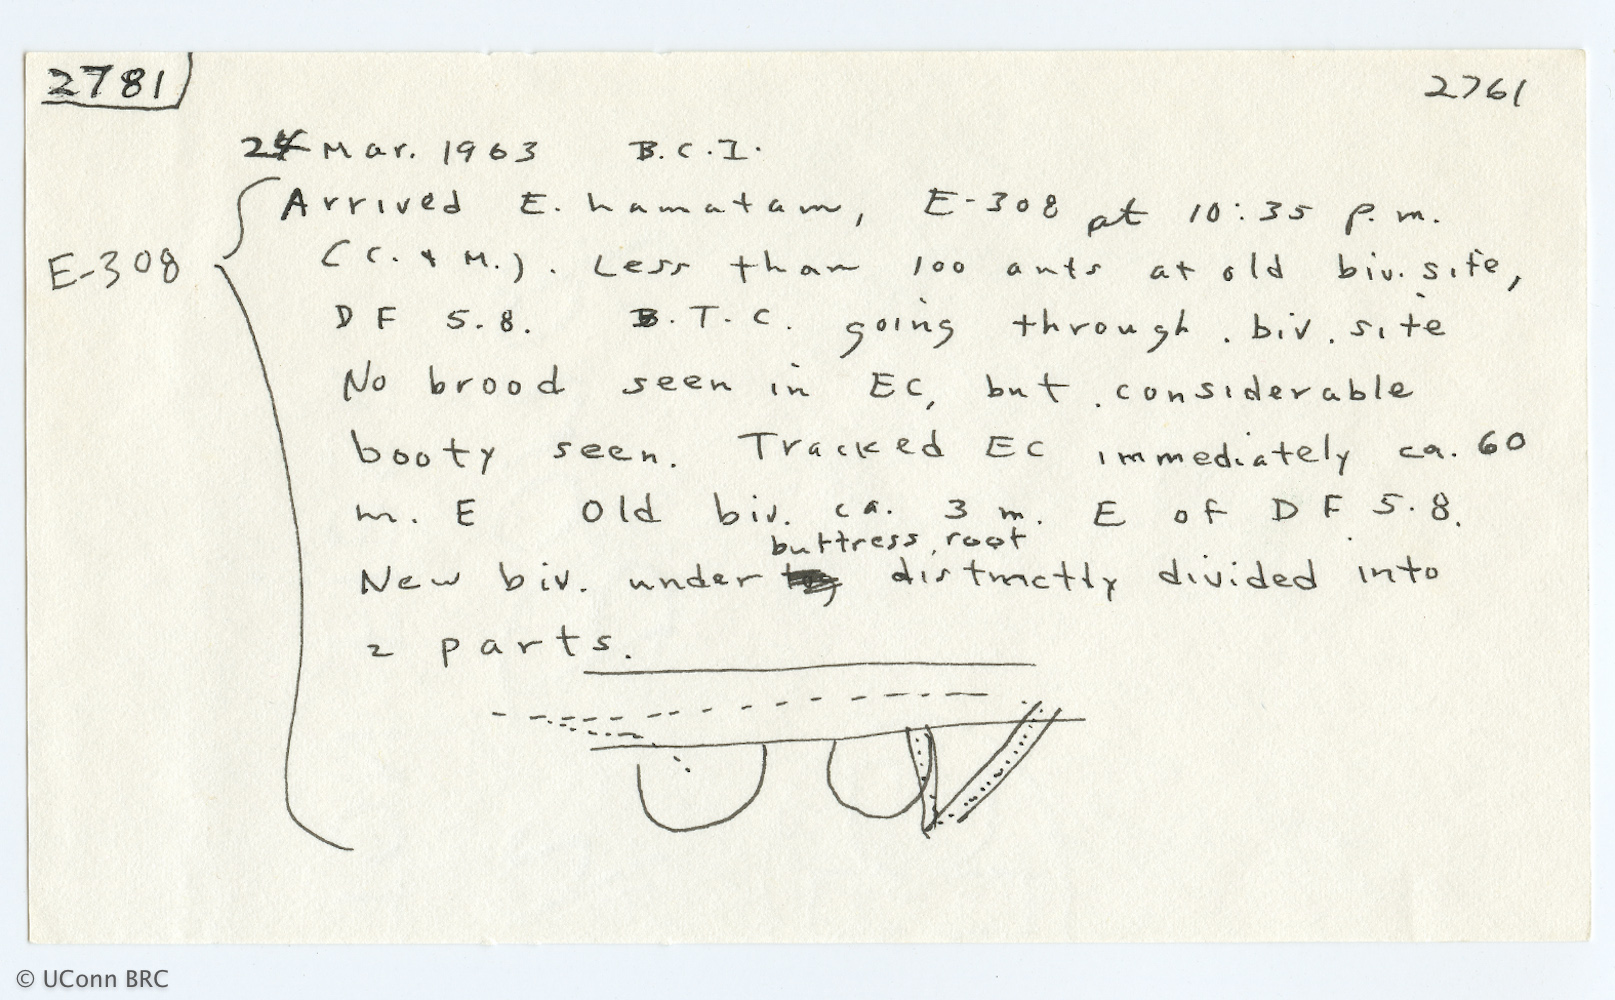 2781
2761
24 Mar. 1963 B.C.I.
Arrived E. hamatum, E-308 at 10:35 p.m.
E-308
(C. + M.). Less than 100 ants at old biv. site,
DF 5.8. B.T.C. going through biv. site
No brood seen in EC, but considerable
booty seen. Tracked EC immediately ca. 60
m. E Old biv. ca. 3 m. E of DF 5.8.
buttress root
New biv. under distinctly divided into
2 parts.
© UConn BRC